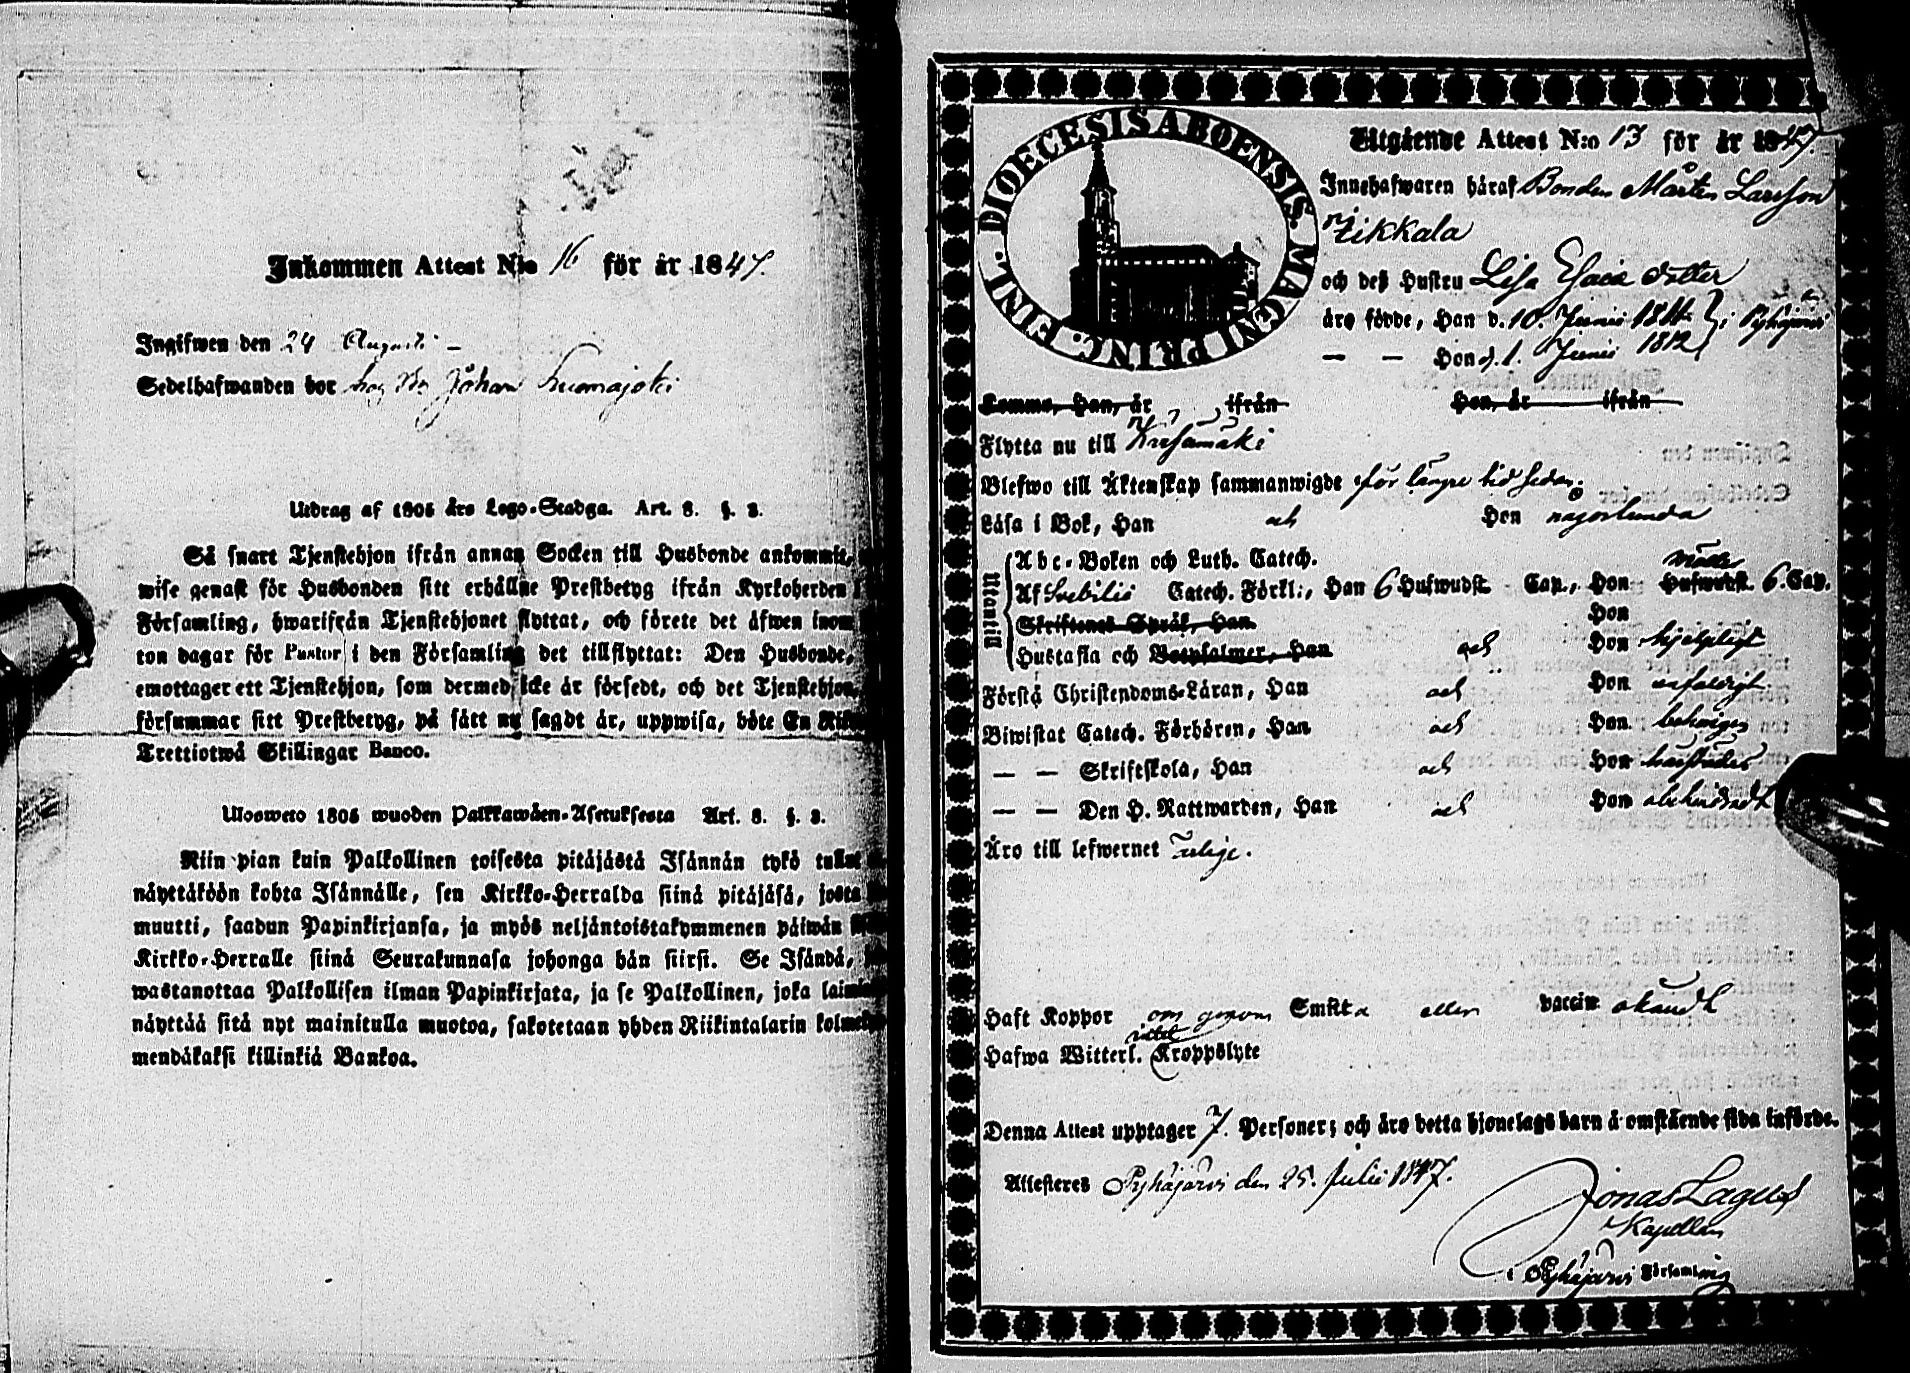 Inkommen Attest N:o 16 för år 1847.
Ingifwen den 24 Augusti
Sedelhafwanden bor hos Johan
Utdrag af 1805 års Lego-Stadga. Art. 8. §. 3.
Så snart Tjenstehjon ifrån annan Socken till Husbonde ankommit,
wise genast för Husbonden sitt erhållne Prestbetyg ifrån Kyrkoherden i
Församling, hwarifrån Tjenstehjonet flyttat, och förete det äfwen inom
ton dagar för Pastor i den Församling det tillflyttat: Den Husbonde,
emottager ett Tjenstehjon, som dermed icke är försedt, och det Tjenstehjon,
försummar sitt Prestbetyg, på sätt nu sagdt är, uppwisa, böte En
Trettiotwå Skillingar Banco.
Uloswoto 1805 wuoden Palkkawäen-Asetuksesta Art. 8. §. 3.
Niin pian kuin Palkollinen toisesta pitäjästä Isännän tykö tullut
näyttäköön kohta Isännälle, sen Kirkko-Herralda siinä pitäjäsä, josta
muutti, saadun Papinkirjansa, ja myös neljäntoistakymmenen päiwän
Kirkko-Herralle siinä Seurakunnasa johonga hän siirsi. Se Isändä,
wastanottaa Palkollisen ilman Papinkirjata, ja se Palkollinen, joka
näyttää sitä nyt mainitulla muotoa, sakotetaan yhden Riikintalarin
mendäkaksi killinkiä Bankoa.
DIOECESIS ABOENSIS. MAGNI PRINC. FINL.
Utgående Attest N:o 13 för år 1847.
Innehafwaren håraf Bonden Mårten Larsson
och deß Hustru Lisa Esaiae dotter
äro födde, Han d. 10. Junii 1811. i Pyhäjärvi
— — Hon d. 1. Junii 1812
Komme, Han, år ifrån Hon, år ifrån
Flytta nu till Kärsämäki
Blefwo till Äktenskap sammanwigde för längre tid sedan.
Läsa i Bok, Han och Hon någorlunda
Utantill
Abc-Boken och Luth. Catech.
Af Svebilii Catech. Förkl:, Han 6 Hufwudst. Cap., Hon Hufwudst. 6. Cap.
Skriftenes Språk, Han Hon
Hustafla och Botpsalmer, Han och Hon hjelpligt
Förstå Christendoms-Läran, Han och Hon enfaldigt
Biwistat Catech. Förhören, Han och Hon behörigen
— — Skriftskola, Han och Hon
— — Den H. Nattwarden, Han och Hon
Äro till lefwernet ärlige.
Haft Koppor om genom Smitta eller vaccin okändt
Hafwa Witterl. intet Kroppslyte
Denna Attest upptager 7. Personer; och äro detta hjonelags barn å omstående sida införde.
Attesteres Pyhäjärvi den 25. Julii 1847.
Jonas Lagus
Kapellan
i Pyhäjärvi Församling